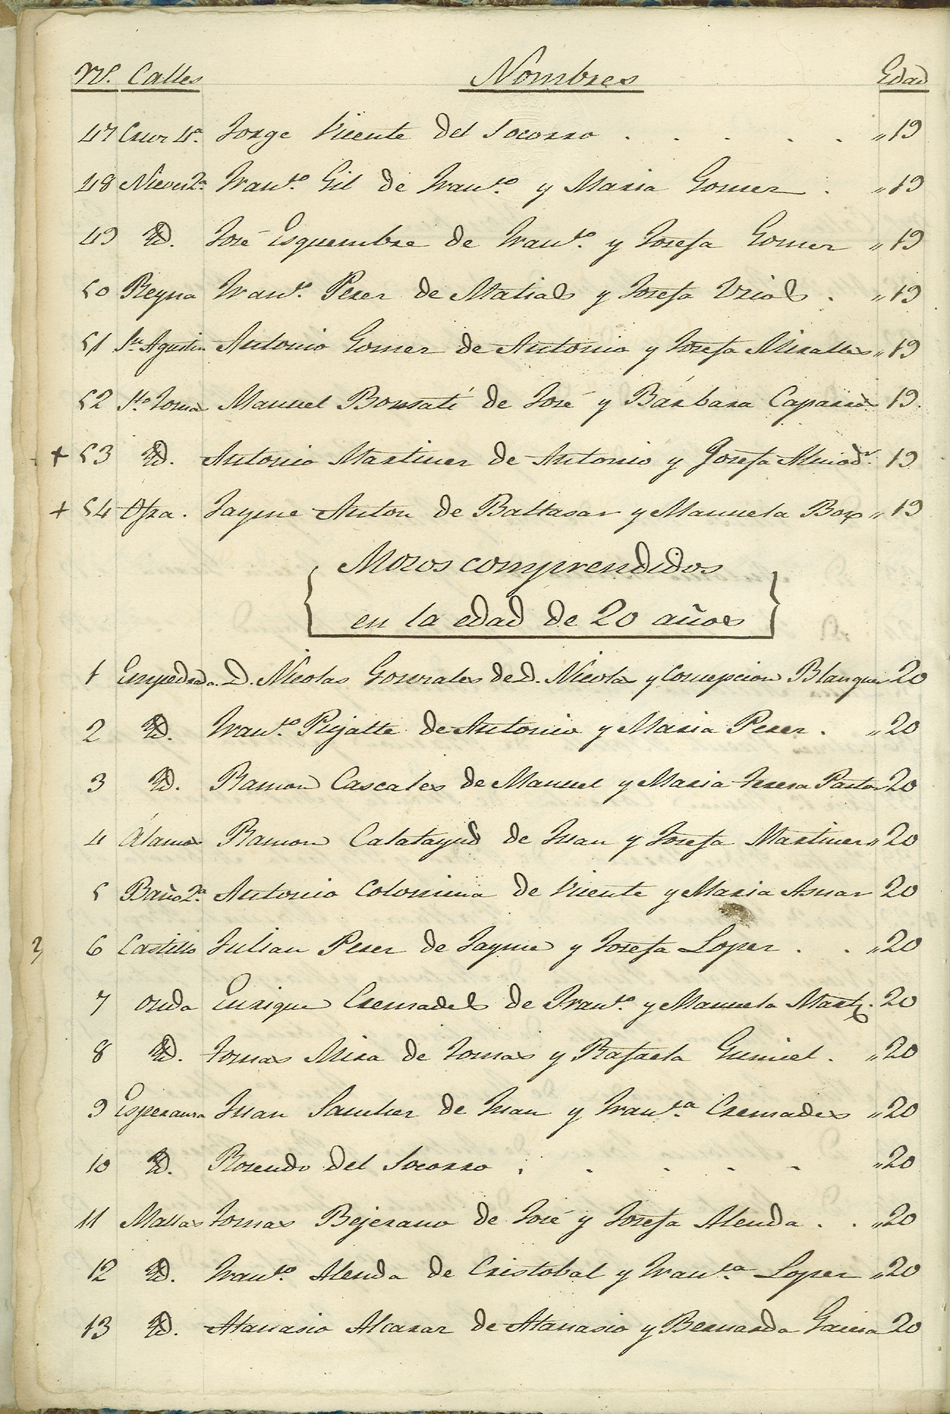 Nº. Calles Nombres Edad
47 Cruz 4ª. Jorge Vicente del Socorro . . . . . „ 19
48 Nieves 2ª Franᶜᵒ. Gil de Franᶜᵒ. y Maria Gomez . „ 19
49 Yd. José Esquembre de Franᶜᵒ. y Josefa Gomez „ 19
50 Reyna Franᶜᵒ. Perez de Matias y Josefa Vrios . „ 19
51 Sn. Agustin Antonio Gomez de Antonio y Josefa Miralles „ 19
52 Sto. Toma Manuel Bonmatí de José y Bárbara Caparros 19.
+ 53 Yd. Antonio Martinez de Antonio y Josefa Almodʳ. 19
+ 54 Ofra. Jayme Anton de Baltasar y Manuela Box „ 19
Mozos comprendidos
en la edad de 20 años
1 Empedrada. D. Nicolas Gonzales de D. Nicolas y Concepcion Blanquer 20
2 Yd. Franᶜᵒ. Pijatte de Antonio y Maria Perez . „ 20
3 Yd. Ramon Cascales de Manuel y Maria Teresa Pastor 20
4 Álamos Ramon Calatayud de Juan y Josefa Martinez „ 20
5 Baño 2ª Antonio Colomina de Vicente y Maria Asnar 20
6 Castillo Julian Perez de Jayme y Josefa Lopez . . „ 20
7 Onda Enrique Cremades de Franᶜᵒ. y Manuela Martz. 20
8 Yd. Tomas Mira de Tomas y Rafaela Guniel . „ 20
9 Esperanza Juan Sanchez de Juan y Franᶜᵃ. Cremades „ 20
10 Yd. Rosendo del Socorro . . . . . „ 20
11 Mallas Tomas Bejerano de José y Josefa Alenda . . „ 20
12 Yd. Franᶜᵒ. Alenda de Cristobal y Franᶜᵃ. Lopez „ 20
13 Yd. Atanasio Alcaraz de Atanasio y Bernarda Garcia 20